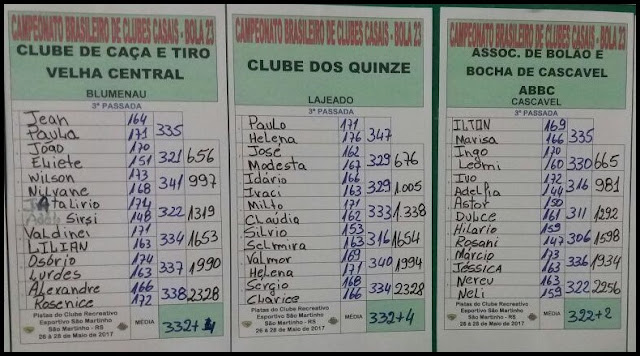 CAMPEONATO BRASILEIRO DE CLUBES CASAIS - BOLA 23
CLUBE DE CAÇA E TIRO
VELHA CENTRAL
BLUMENAU
3ª PASSADA
Jean 164
Paula 171 335
João 170
Eliete 151 321 656
Wilson 173
Nilvane 168 341 997
Natalirio 174
Sirsi 148 322 1319
Valdinei 171
LILIAN 163 334 1653
Osório 174
Lurdes 163 337 1990
Alexandre 166
Rosenice 172 338 2328
Pistas do Clube Recreativo
Esportivo São Martinho
São Martinho - RS
26 à 28 de Maio de 2017
MÉDIA 332+4
CAMPEONATO BRASILEIRO DE CLUBES CASAIS - BOLA 23
CLUBE DOS QUINZE
LAJEADO
3ª PASSADA
Paulo 171
Helena 176 347
José 162
Modesta 167 329 676
Idário 166
Ivaci 163 329 1.005
Milto 171
Claudia 162 333 1.338
Silvio 153
Selmira 163 316 1654
Valmor 169
Helena 171 340 1994
Sergio 168
Clarice 166 334 2328
Pistas do Clube Recreativo
Esportivo São Martinho
São Martinho - RS
26 à 28 de Maio de 2017
MÉDIA 332+4
CAMPEONATO BRASILEIRO DE CLUBES CASAIS - BOLA 23
ASSOC. DE BOLÃO E
BOCHA DE CASCAVEL
ABBC
CASCAVEL
3ª PASSADA
ILTON 169
Mavisa 166 335
Ingo 170
Leomi 160 330 665
Ivo 172
Adelpia 144 316 981
Astor 150
Dulce 161 311 1292
Hilario 159
Rosani 147 306 1598
Márcio 173
Jéssica 163 336 1934
Nereu 163
Neli 159 322 2256
Pistas do Clube Recreativo
Esportivo São Martinho
São Martinho - RS
26 à 28 de Maio de 2017
MÉDIA 322+2